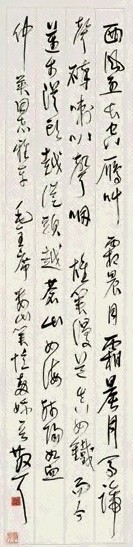 西風烈長空雁叫霜晨月霜晨月馬蹄
聲碎喇叭聲咽雄關漫道真如鐵而今
邁步從頭越從頭越蒼山如海殘陽如血
同志雅毛主席婁山關憶秦娥